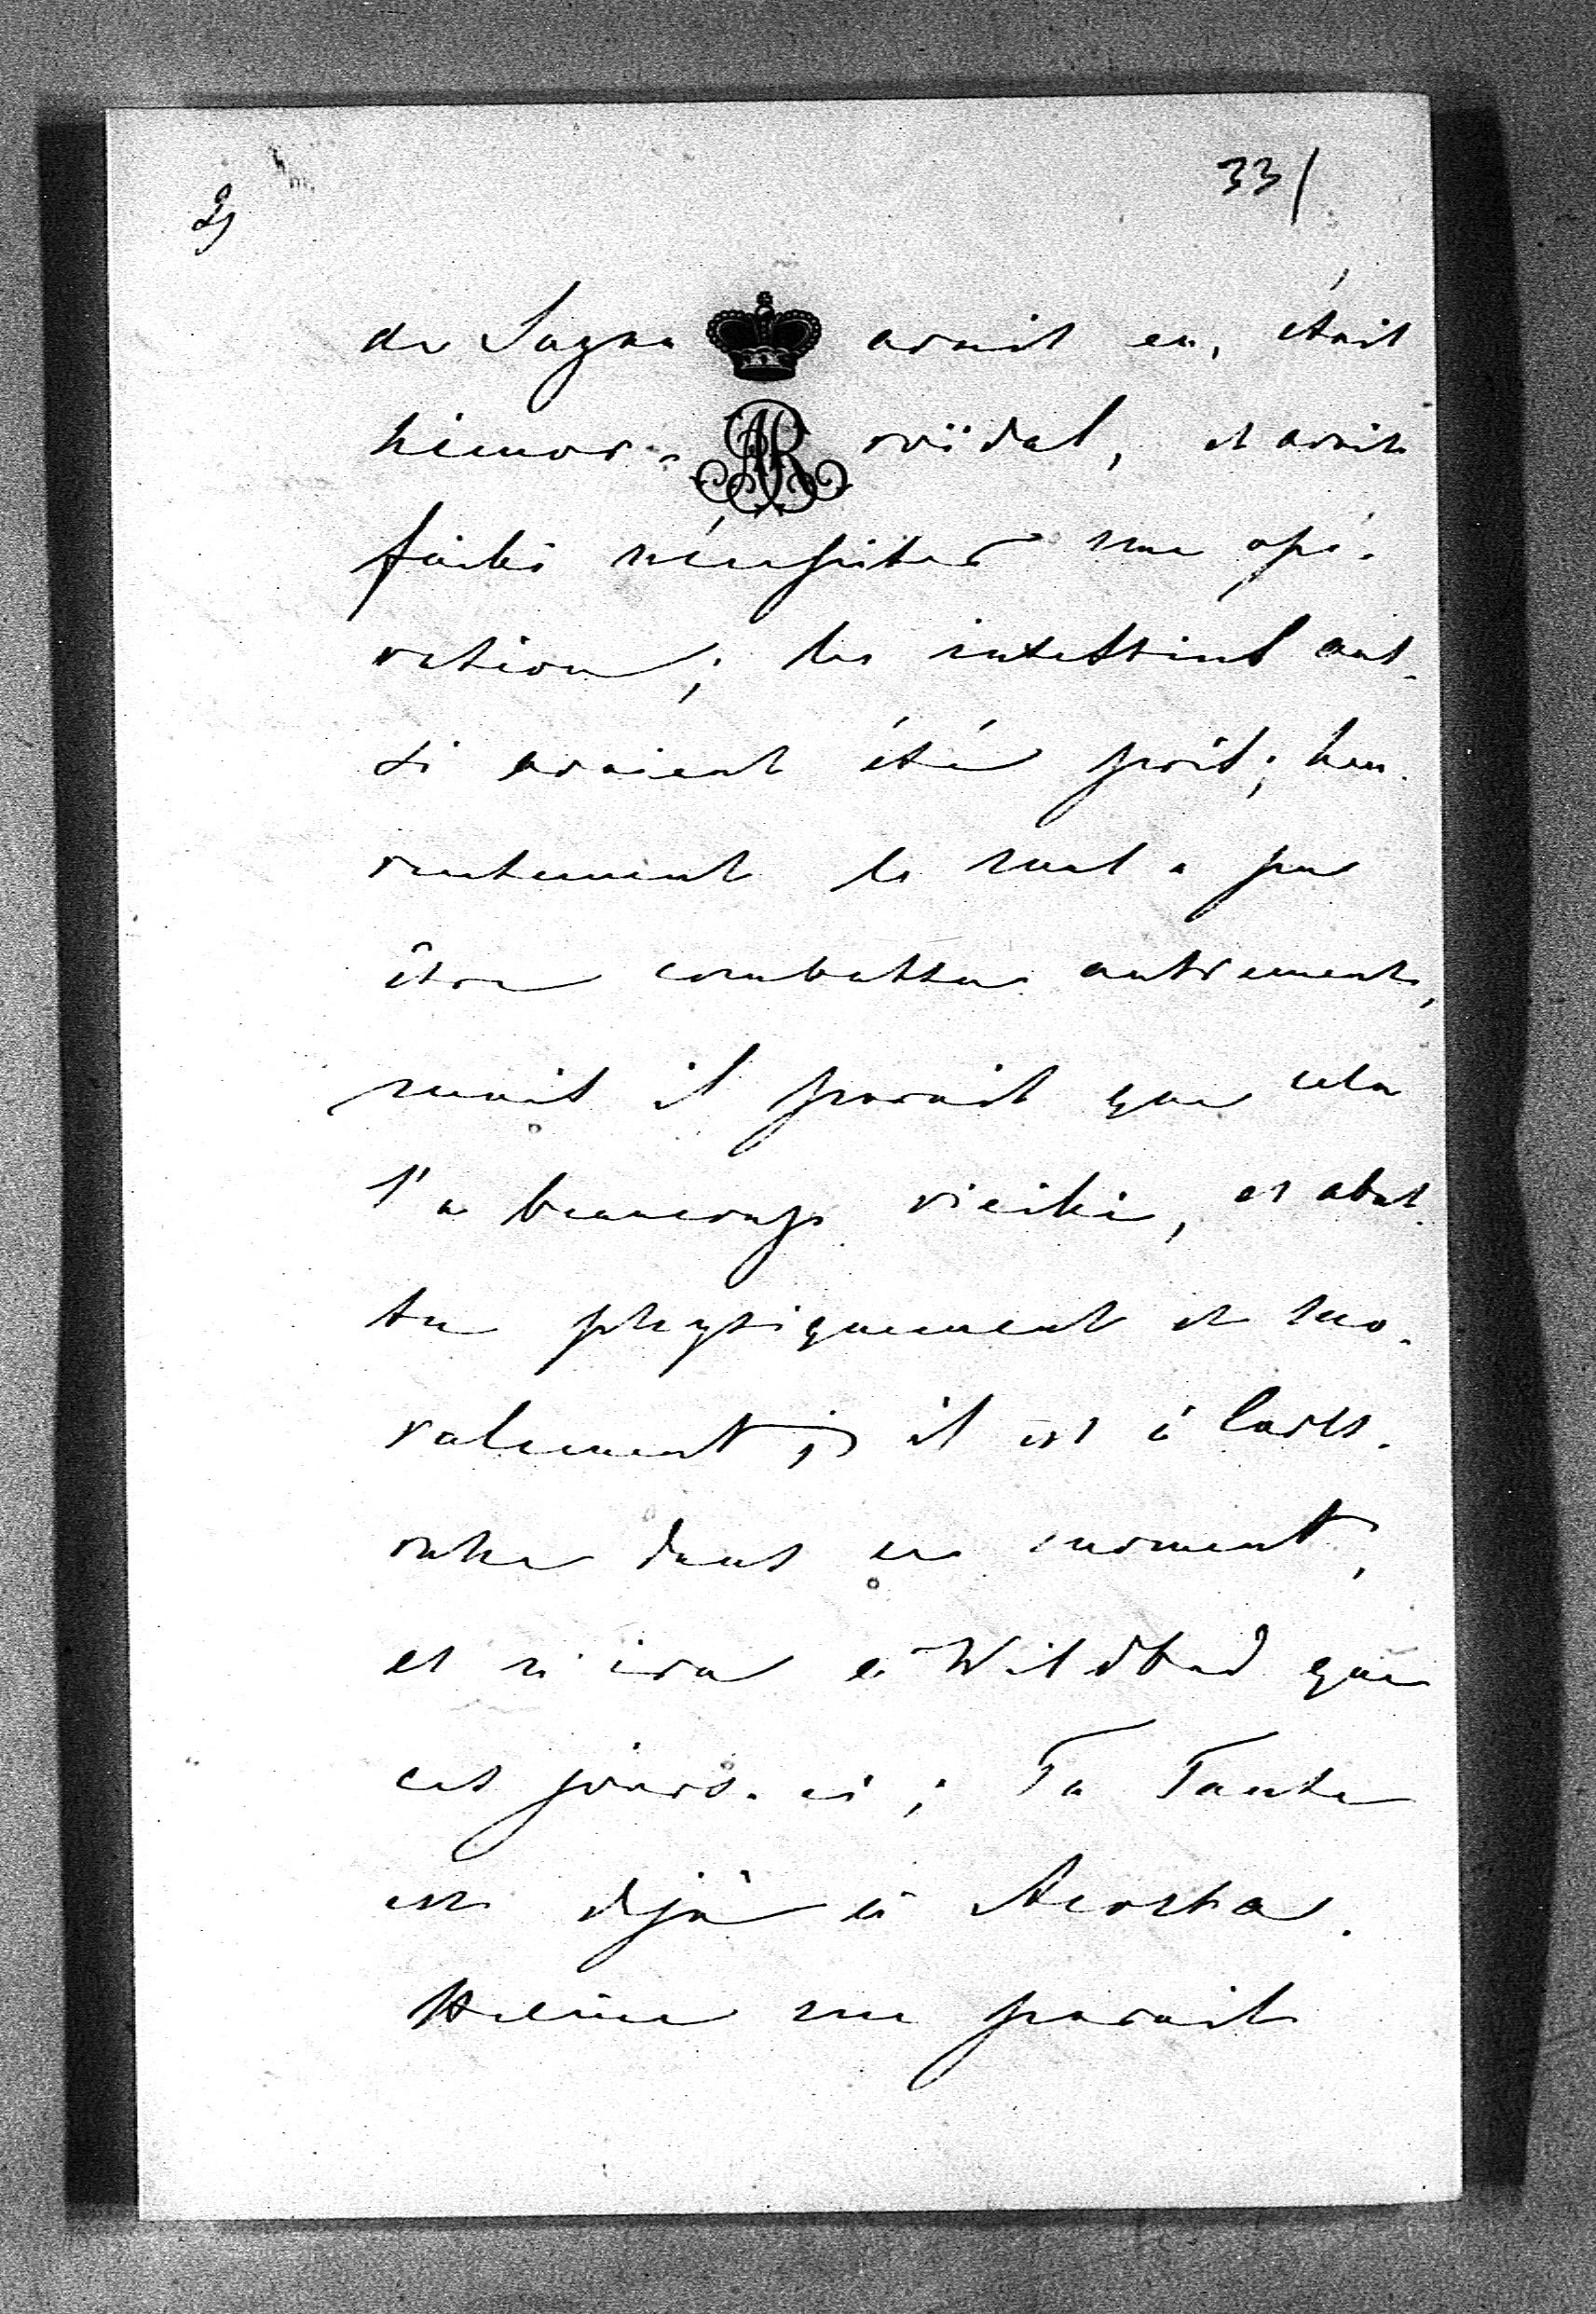 2)
331
de Sagan avait eu, était
hémor- roïdal, et avait
failli nécessiter une opé-
ration; les intestins aus-
si avaient été pris; heu-
reusement le mal a pu
être combattu autrement,
mais il parait que cela
l'a beaucoup vieilli, et abat-
tu physiquement et mo-
ralement; il est à Carls-
ruhe dans ce moment,
et n'ira à Wildbad que
ces jours-ci; Ta Tante
est déjà à
Hélène me parait